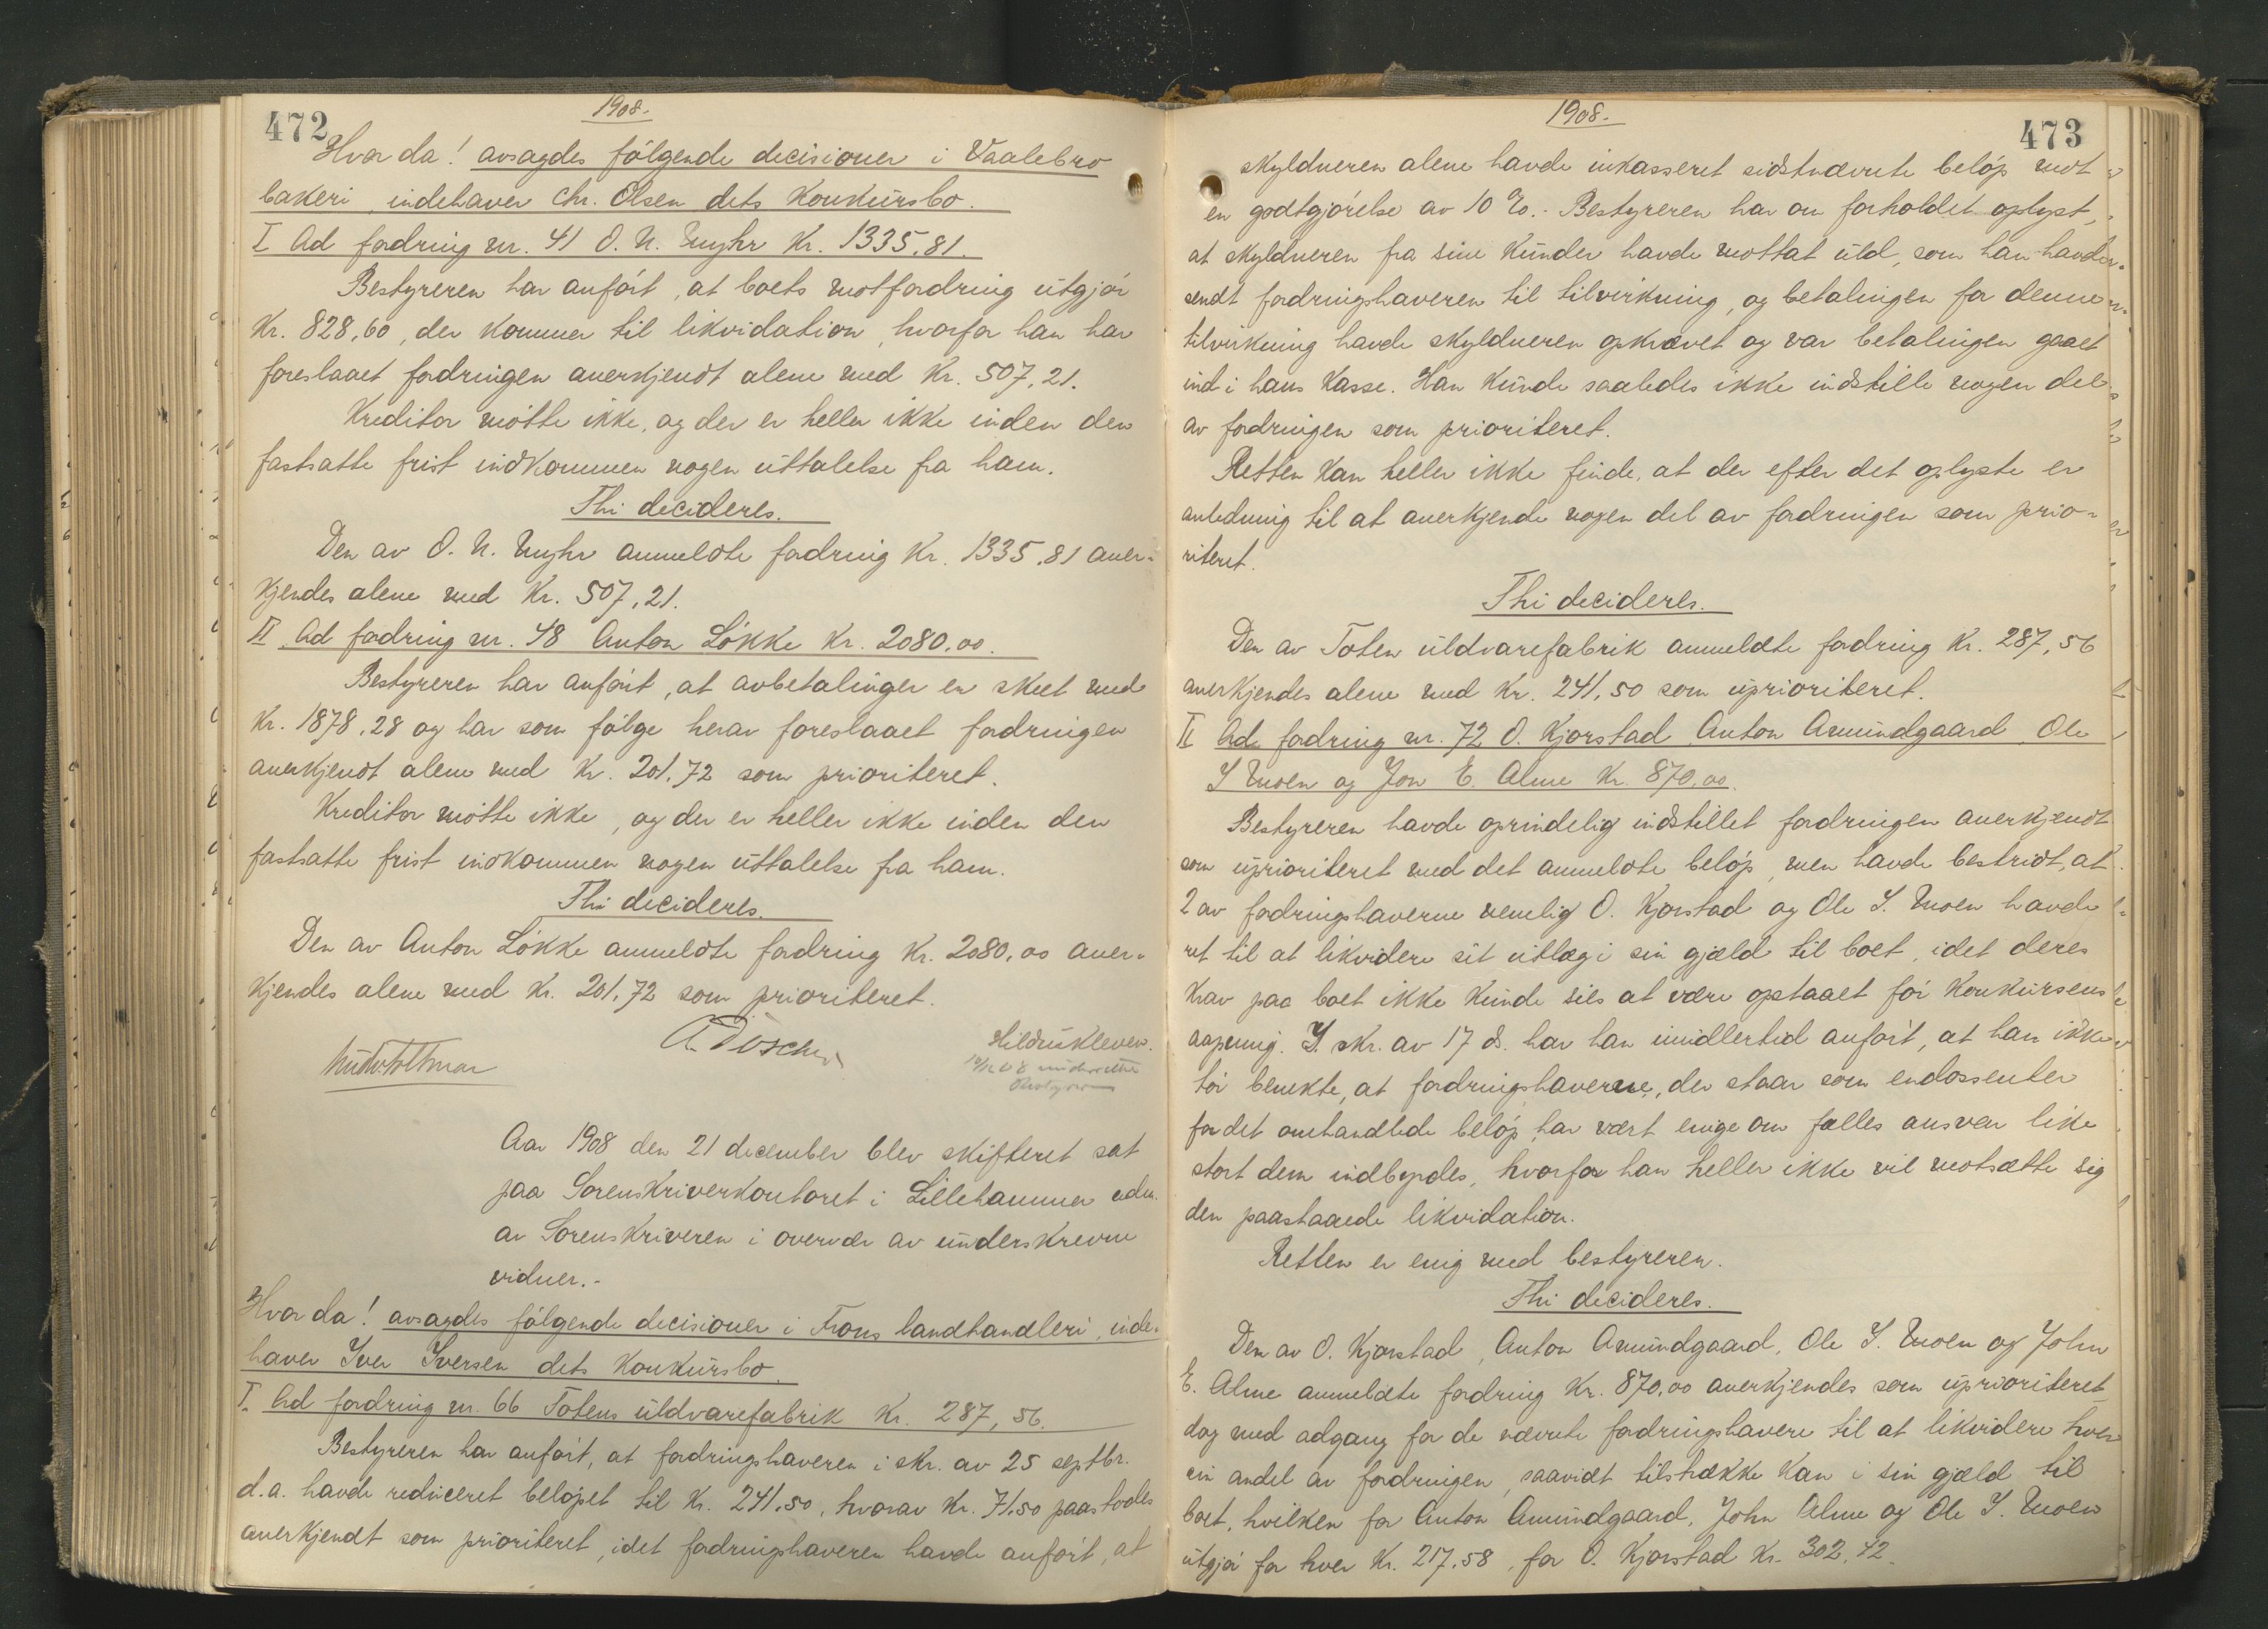 472
1908.
Hvor da! avsagdes følgende decisioner i Vaalebro
bakeri, indehaver Chr. Olsen dets konkursbo.
I Ad fordring nr. 41 O. N. Myhr Kr. 1335.81.
Bestyreren har anført, at boets motfordring utgjør
Kr. 828,60, der kommer til likvidation, hvorfor han har
foreslaaet fordringen anerkjendt alene med Kr. 507,21.
Kreditor møtte ikke, og der er heller ikke inden den
fastsatte frist indkommen nogen uttalelse fra ham.
Thi decideres.
Den av O. N. Myhr anmeldte fordring Kr. 1335.81 aner-
kjendes alene med Kr. 507,21.
II Ad fordring nr. 48 Anton Løkke Kr. 2080,00.
Bestyreren har anført, at avbetalinger er skeet med
Kr. 1878,28 og har som følge herav foreslaaet fordringen
anerkjendt alene med Kr. 201,72 som prioriteret.
Kreditor møtte ikke, og der er heller ikke inden den
fastsatte frist indkommen nogen uttalelse fra ham.
Thi decideres.
Den av Anton Løkke anmeldte fordring Kr. 2080,00 aner-
kjendes alene med Kr. 201,72 som prioriteret.
Aar 1908 den 21 december blev skifteret sat
paa Sorenskriverkontoret i Lillehammer adm.
av Sorenskriveren i overvær av underskrevne
vidner.-
Hvor da! avsagdes følgende decisioner i Frons landhandleri, inde-
haver Iver Iversen dets konkursbo.
I. Ad fordring nr. 66 Totens uldvarefabrik Kr. 287,56.
Bestyreren har anført, at fordringshaveren i skr. av 25 septbr.
d.a. havde reduceret beløpet til Kr. 241,50, hvorav Kr. 71,50 paastodes
anerkjendt som prioriteret, idet fordringshaveren havde anført, at
473
1908.
skyldneren alene havde inkasseret sidstnævnte beløp mot
en godtgjørelse av 10 %.- Bestyreren har om forholdet oplyst,
at skyldneren fra sine kunder havde mottat uld, som han havde
sendt fordringshaveren til tilvirkning, og betalingen for denne
tilvirkning havde skyldneren opkrævet og var betalingen gaaet
ind i hans kasse. Han kunde saaledes ikke indstille nogen del
av fordringen som prioriteret.
Retten kan heller ikke finde, at der efter det oplyste er
anledning til at anerkjende nogen del av fordringen som prio-
riteret.
Thi decideres.
Den av Toten uldvarefabrik anmeldte fordring Kr. 287,56
anerkjendes alene med Kr. 241,50 som uprioriteret.
II Ad fordring nr. 72 O. Kjorstad, Anton Amundgaard, Ole
S. Moen og Jon E. Alme Kr. 870,00.
Bestyreren havde oprindelig indstillet fordringen anerkjendt
som uprioriteret med det anmeldte beløp, men havde bestridt, at
2 av fordringshaverne nemlig O. Kjorstad og Ole S. Moen havde
ret til at likvidere sit utlæg i sin gjæld til boet, idet deres
krav paa boet ikke kunde siles at være opstaaet før konkursens
aapning. I skr. av 17 ds. har han imidlertid anført, at han ikke
tør benekte, at fordringshaverne, der staar som endossenter
for det omhandlede beløp, har vært enige om fælles ansvar like
stort dem indbyrdes, hvorfor han heller ikke vil motsætte sig
den paastaaede likvidation.
Retten er enig med bestyreren.
Thi decideres.
Den av O. Kjorstad, Anton Amundgaard, Ole S. Moen og John
E. Alme anmeldte fordring Kr. 870,00 anerkjendes som uprioriteret
dog med adgang for de nævnte fordringshavere til at likvidere hver
sin andel av fordringen, saavidt tilstrække kan i sin gjæld til
boet, hvilken for Anton Amundgaard, John Alme og Ole S. Moen
utgjør for hver Kr. 217,58, for O. Kjorstad Kr. 302,42.